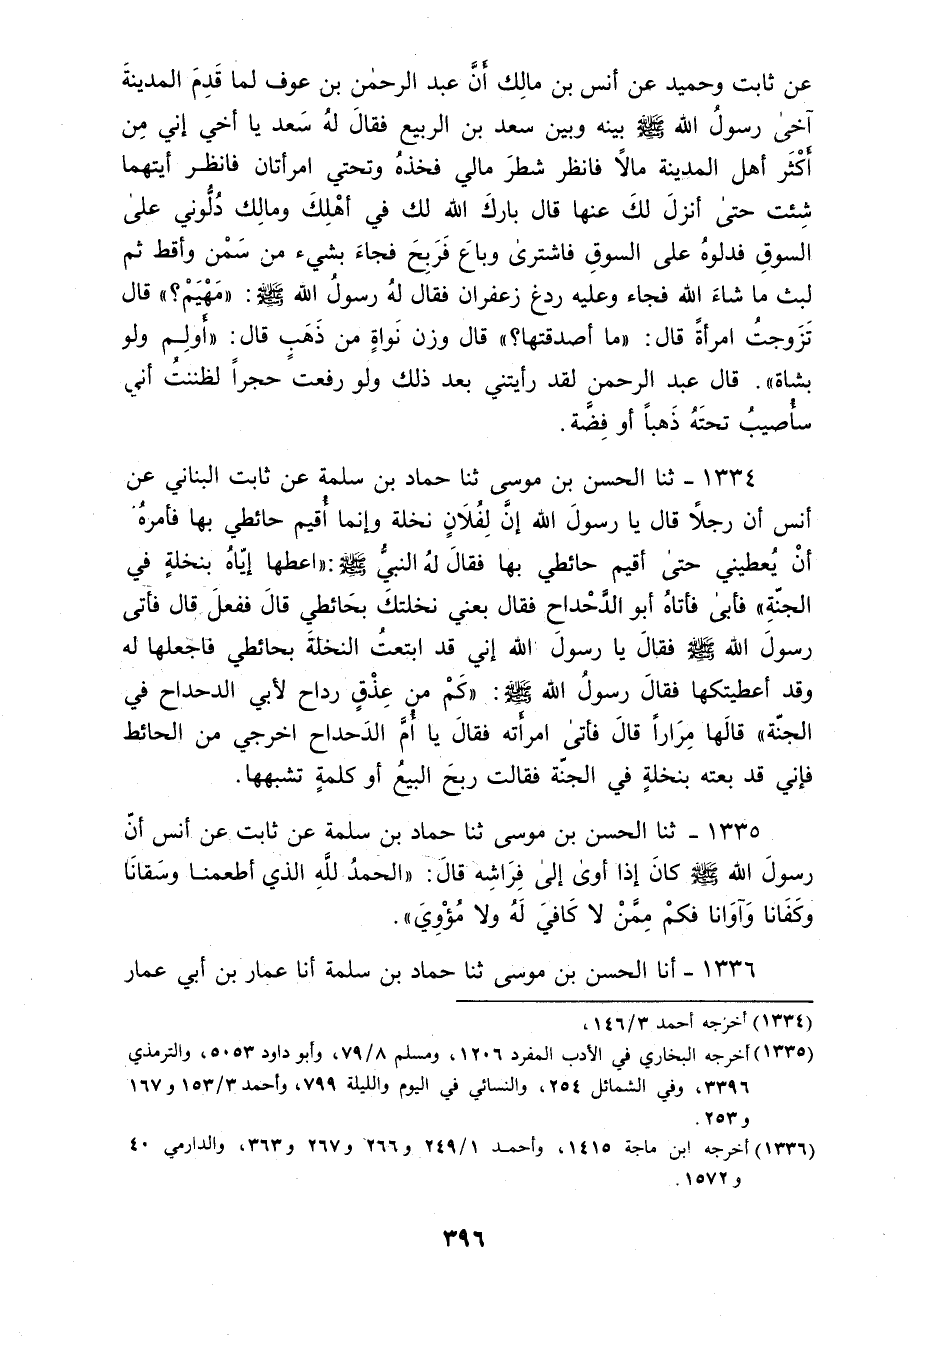 عن ثابت وحميد عن أنس بن مالِك أَنَّ عبد الرحمٰن بن عوف لما قَدِمَ المدينةَ
آخىٰ رسولُ الله ﷺ بينه وبين سعد بن الربيع فقالَ لهُ سَعد يا أخي إني مِن
أَكْثَرِ أهل المدينة مالًا فانظر شطرَ مالي فخذهُ وتحتي امرأتان فانظـر أيتهما
شِئت حتىٰ أنزلَ لكَ عنها قال باركَ الله لك في أهْلِكَ ومالِك دُلُّوني علىٰ
السوقِ فدلوهُ على السوقِ فاشترىٰ وباعَ فَرَبِحَ فجاءَ بشيء من سَمْن وأقط ثم
لبث ما شاءَ الله فجاء وعليه ردغ زعفران فقال لهُ رسولُ الله ﷺ: «مَهْيَمْ؟» قال
تَزَوجتُ امرأةً قال: «ما أصدقتها؟» قال وزن نَواةٍ من ذَهَبٍ قال: «أَولِـم ولو
بشاة». قال عبد الرحمن لقد رأيتني بعد ذلك ولو رفعت حجراً لظننتُ أني
سأُصيبُ تحتَهُ ذَهباً أو فِضَّة.
١٣٣٤ - ثنا الحسن بن موسى ثنا حماد بن سلمة عن ثابت البناني عن
أنس أن رجلاً قال يا رسولَ الله إنَّ لِفُلَانٍ نخلة وإنما أُقيم حائطي بها فأمرهُ
أنْ يُعطيني حتىٰ أقيم حائطي بها فقالَ لهُ النبيُّ ﷺ:«اعطها إيّاهُ بنخلةٍ في
الجنّةِ» فأبىٰ فأتاهُ أبو الدَّحْداح فقال بعني نخلتكَ بحَائطي قالَ ففعلَ قال فأتى
رسولَ الله ﷺ فقالَ يا رسولَ الله إني قد ابتعتُ النخلةَ بحائطي فاجعلها له
وقد أعطيتكها فقالَ رسولُ الله ﷺ: «كَمْ من عِذْقٍ رداح لأبي الدحداح في
الجنّة» قالَها مِرَاراً قالَ فأتىٰ امرأَته فقالَ يا أُمَّ الدَحداح اخرجي من الحائط
فإني قد بعته بنخلةٍ في الجنّة فقالت ربحَ البيعُ أو كلمةٍ تشبهها.
١٣٣٥ - ثنا الحسن بن موسى ثنا حماد بن سلمة عن ثابت عن أنس أنّ
رسولَ الله ﷺ كانَ إذا أوىٰ إلىٰ فِرَاشه قالَ: «الحمدُ للَّهِ الذي أطعمنـا وسَقانَا
وكَفَانا وَآوَانا فكمْ مِمَّنْ لا كَافيَ لَهُ ولا مُؤْوِيَ».
١٣٣٦ - أنا الحسن بن موسى ثنا حماد بن سلمة أنا عمار بن أبي عمار
(١٣٣٤) أخرجه أحمد ١٤٦/٣،
(١٣٣٥) أخرجه البخاري في الأدب المفرد ١٢٠٦، ومسلم ٧٩/٨، وأبو داود ٥٠٥٣، والترمذي
٣٣٩٦، وفي الشمائل ٢٥٤، والنسائي في اليوم والليلة ٧٩٩، وأحمد ١٥٣/٣ و١٦٧
و٢٥٣.
(١٣٣٦) أخرجه ابن ماجة ١٤١٥، وأحمـد ٢٤٩/١ و٢٦٦ و٢٦٧ و٣٦٣، والدارمي ٤٠
و١٥٧٢.
٣٩٦